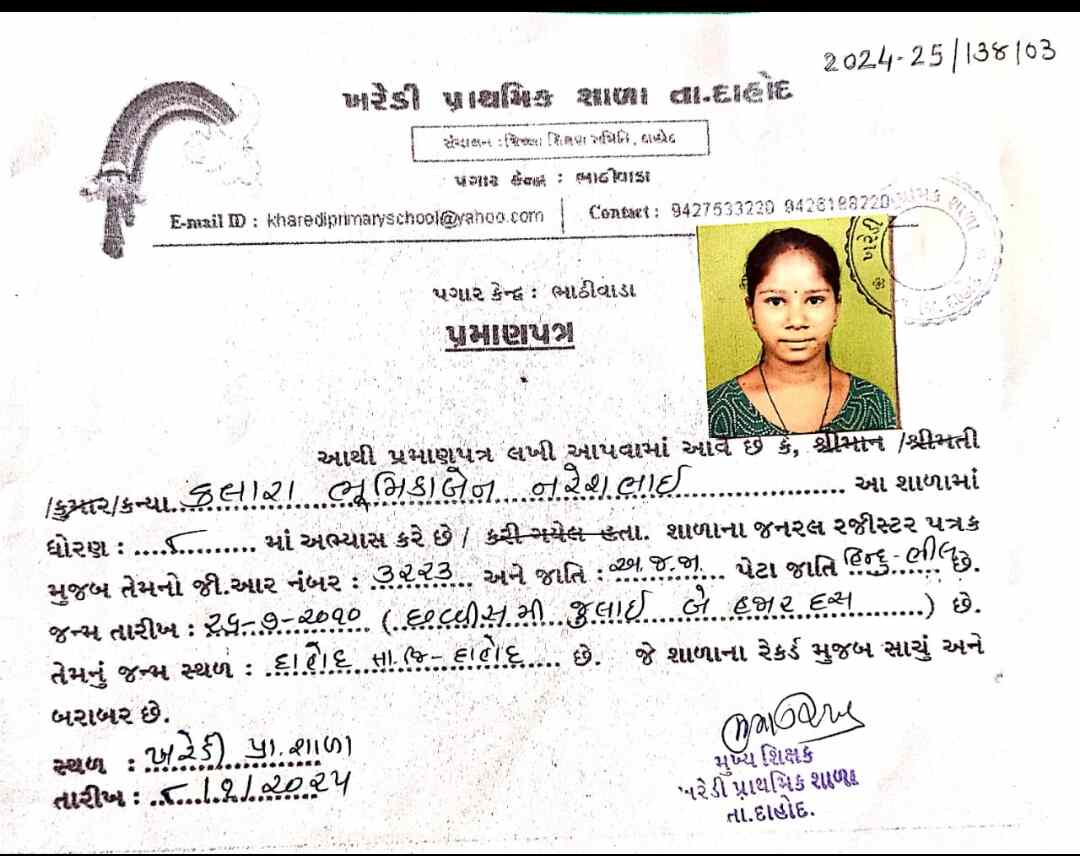 2024-25/138/03
ખરેડી પ્રાથમિક શાળા તા.દાહોદ
સંચાલન : જિલ્લા શિક્ષણ સમિતિ, દાહોદ
પગાર કેન્દ્ર : ભાઠીવાડા
E-mail ID : kharediprimaryschool@yahoo.com | Contact : 9427533230 9426188220
પગાર કેન્દ્ર : ભાઠીવાડા
પ્રમાણપત્ર
આથી પ્રમાણપત્ર લખી આપવામાં આવે છે કે, શ્રીમાન /શ્રીમતી
/કુમાર/કન્યા..કલારા ભૂમિકાબેન નરેશભાઈ.......... આ શાળામાં
ધોરણ : ....૮.......... માં અભ્યાસ કરે છે / કરી ગયેલ હતા. શાળાના જનરલ રજીસ્ટર પત્રક
મુજબ તેમનો જી.આર નંબર : ૩૨૨૩... અને જાતિ : અ.જ.જા.... પેટા જાતિ હિન્દુ-ભીલ છે.
જન્મ તારીખ : ૨૬-૭-૨૦૧૦ (છવ્વીસમી જુલાઈ બે હજાર દસ........) છે.
તેમનું જન્મ સ્થળ : દાહોદ તા.જિ-દાહોદ..... છે. જે શાળાના રેકર્ડ મુજબ સાચું અને
બરાબર છે.
સ્થળ : ખરેડી પ્રા.શાળા
તારીખ : ..૮../૧/૨૦૨૫
મુખ્ય શિક્ષક
ખરેડી પ્રાથમિક શાળા
તા.દાહોદ.